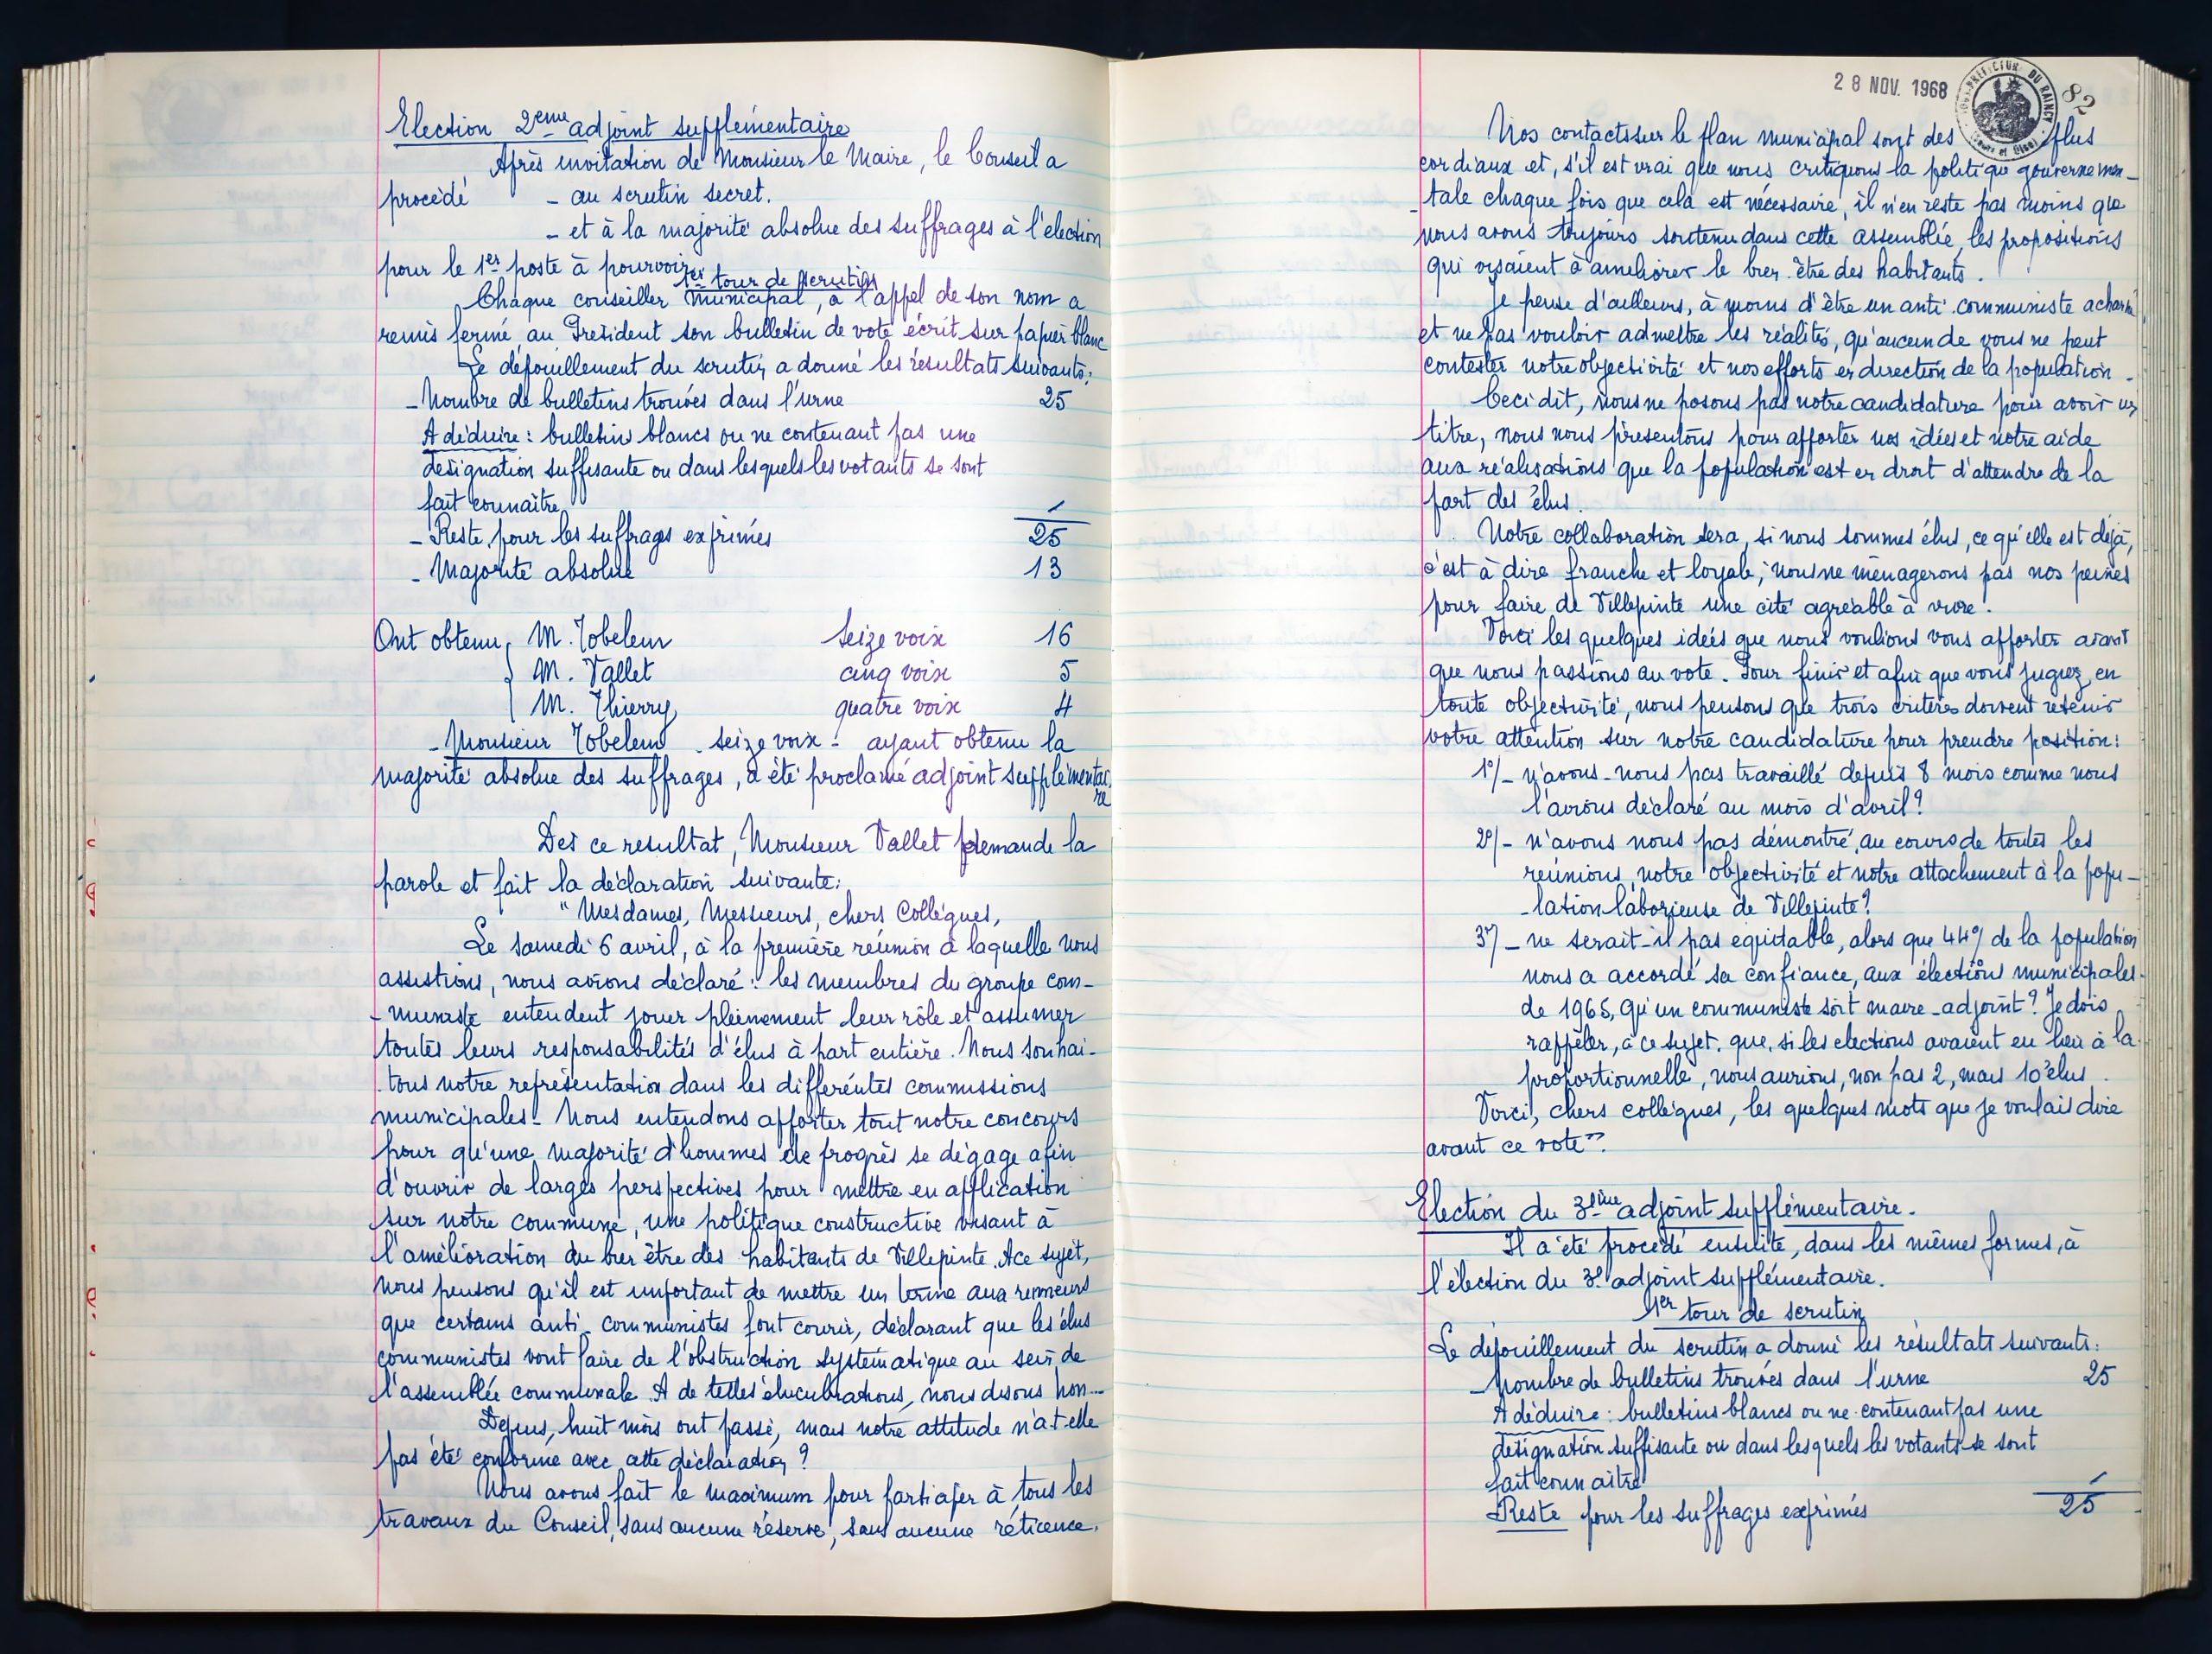 Election 2eme adjoint supplémentaire
Après invitation de Monsieur le Maire, le Conseil a
procédé - au scrutin secret.
- et à la majorité absolue des suffrages à l'élection
pour le 1er poste à pourvoir.
1er tour de scrutin
Chaque conseiller municipal, à l'appel de son nom a
remis fermé au Président son bulletin de vote écrit sur papier blanc
Le dépouillement du scrutin a donné les résultats suivants:
- Nombre de bulletins trouvés dans l'urne 25
A déduire: bulletins blancs ou ne contenant pas une
désignation suffisante ou dans lesquels les votants se sont
fait connaître /
- Reste, pour les suffrages exprimés 25
- Majorité absolue 13
Ont obtenu M. Tobelem seize voix 16
M. Vallet cinq voix 5
M. Thierry quatre voix 4
- Monsieur Tobelem - seize voix - ayant obtenu la
majorité absolue des suffrages, a été proclamé adjoint supplémentai
re
Dès ce resultat, Monsieur Vallet demande la
parole et fait la déclaration suivante:
" Mesdames, Messieurs, chers Collègues,
Le samedi 6 avril, à la première réunion à laquelle nous
assistions, nous avions déclaré: les membres du groupe com-
-muniste entendent jouer pleinement leur rôle et assumer
toutes leurs responsabilités d'élus à part entière. Nous souhai-
-tons notre représentation dans les différentes commissions
municipales - Nous entendons apporter tout notre concours
pour qu'une majorité d'hommes de progrès se dégage afin
d'ouvrir de larges perspectives pour mettre en application
sur notre commune, une politique constructive visant à
l'amélioration du bien être des habitants de Villepinte. A ce sujet,
nous pensons qu'il est important de mettre un terme aux rumeurs
que certains anti-communistes font courir, déclarant que les élus
communistes vont faire de l'obstruction systématique au sein de
l'assemblée communale. A de telles élucubrations, nous disons non...
Depuis, huit mois ont passé, mais notre attitude n'a t-elle
pas été conforme avec cette déclaration ?
Nous avons fait le maximum pour participer à tous les
travaux du Conseil, sans aucune réserve, sans aucune réticence.
28 NOV. 1968
SOUS-PREFECTURE DU RAINCY
82
Nos contacts sur le plan municipal sont des plus
cordiaux et, s'il est vrai que nous critiquons la politique gouvernemen-
-tale chaque fois que cela est nécessaire, il n'en reste pas moins que
nous avons toujours soutenu dans cette assemblée, les propositions
qui visaient à améliorer le bien-être des habitants.
Je pense d'ailleurs, à moins d'être un anti-communiste acharné
et ne pas vouloir admettre les réalités, qu'aucun de vous ne peut
contester notre objectivité et nos efforts en direction de la population.
Ceci dit, nous ne posons pas notre candidature pour avoir un
titre, nous nous présentons pour apporter nos idées et notre aide
aux réalisations que la population est en droit d'attendre de la
part des élus.
Notre collaboration sera, si nous sommes élus, ce qu'elle est déjà,
c'est à dire franche et loyale; nous ne ménagerons pas nos peines
pour faire de Villepinte une cité agréable à vivre.
Voici les quelques idées que nous voulions vous apporter avant
que nous passions au vote. Pour finir et afin que vous jugiez en
toute objectivité, nous pensons que trois critères doivent retenir
votre attention sur notre candidature pour prendre position:
1°/- n'avons-nous pas travaillé depuis 8 mois comme nous
l'avions déclaré au mois d'avril ?
2°/- n'avons nous pas démontré, au cours de toutes les
réunions, notre objectivité et notre attachement à la popu-
-lation laborieuse de Villepinte ?
3°/- ne serait-il pas équitable, alors que 44% de la population
nous a accordé sa confiance, aux élections municipales
de 1965, qu'un communiste soit maire-adjoint ? Je dois
rappeler, à ce sujet, que, si les elections avaient eu lieu à la
proportionnelle, nous aurions, non pas 2, mais 10 élus.
Voici, chers collègues, les quelques mots que je voulais dire
avant ce vote".
Election du 3ième adjoint supplémentaire.
Il a été procédé ensuite, dans les mêmes formes, à
l'élection du 3e adjoint supplémentaire.
1er tour de scrutin
Le dépouillement du scrutin a donné les résultats suivants:
- Nombre de bulletins trouvés dans l'urne 25
A déduire: bulletins blancs ou ne contenant pas une
désignation suffisante ou dans lesquels les votants se sont
fait connaître /
- Reste pour les suffrages exprimés 25